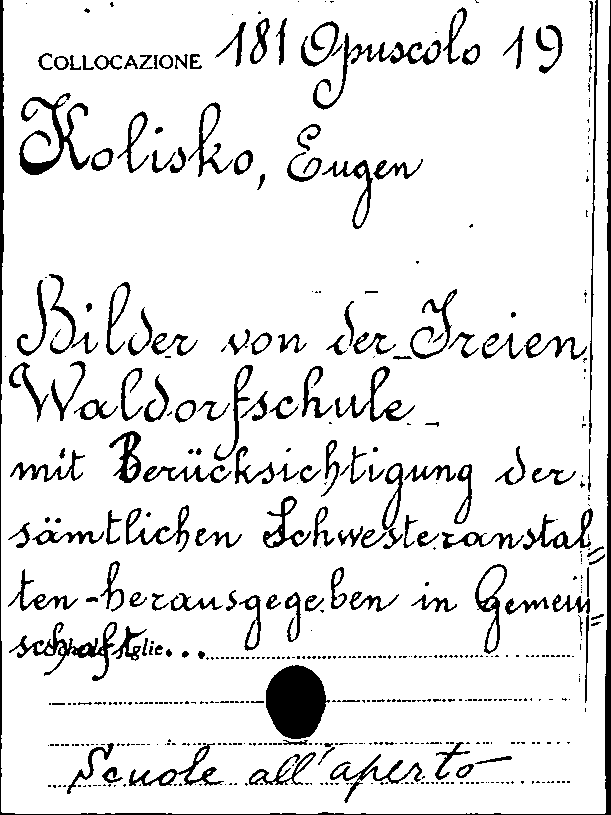 COLLOCAZIONE 181 Opuscolo 19
Kolisko, Eugen
Bilder von der Freien
Waldorfschule
mit Berücksichtigung der
sämtlichen Schwesteranstal=
ten-herausgegeben in Gemein=
schaft...
Scuole all'aperto